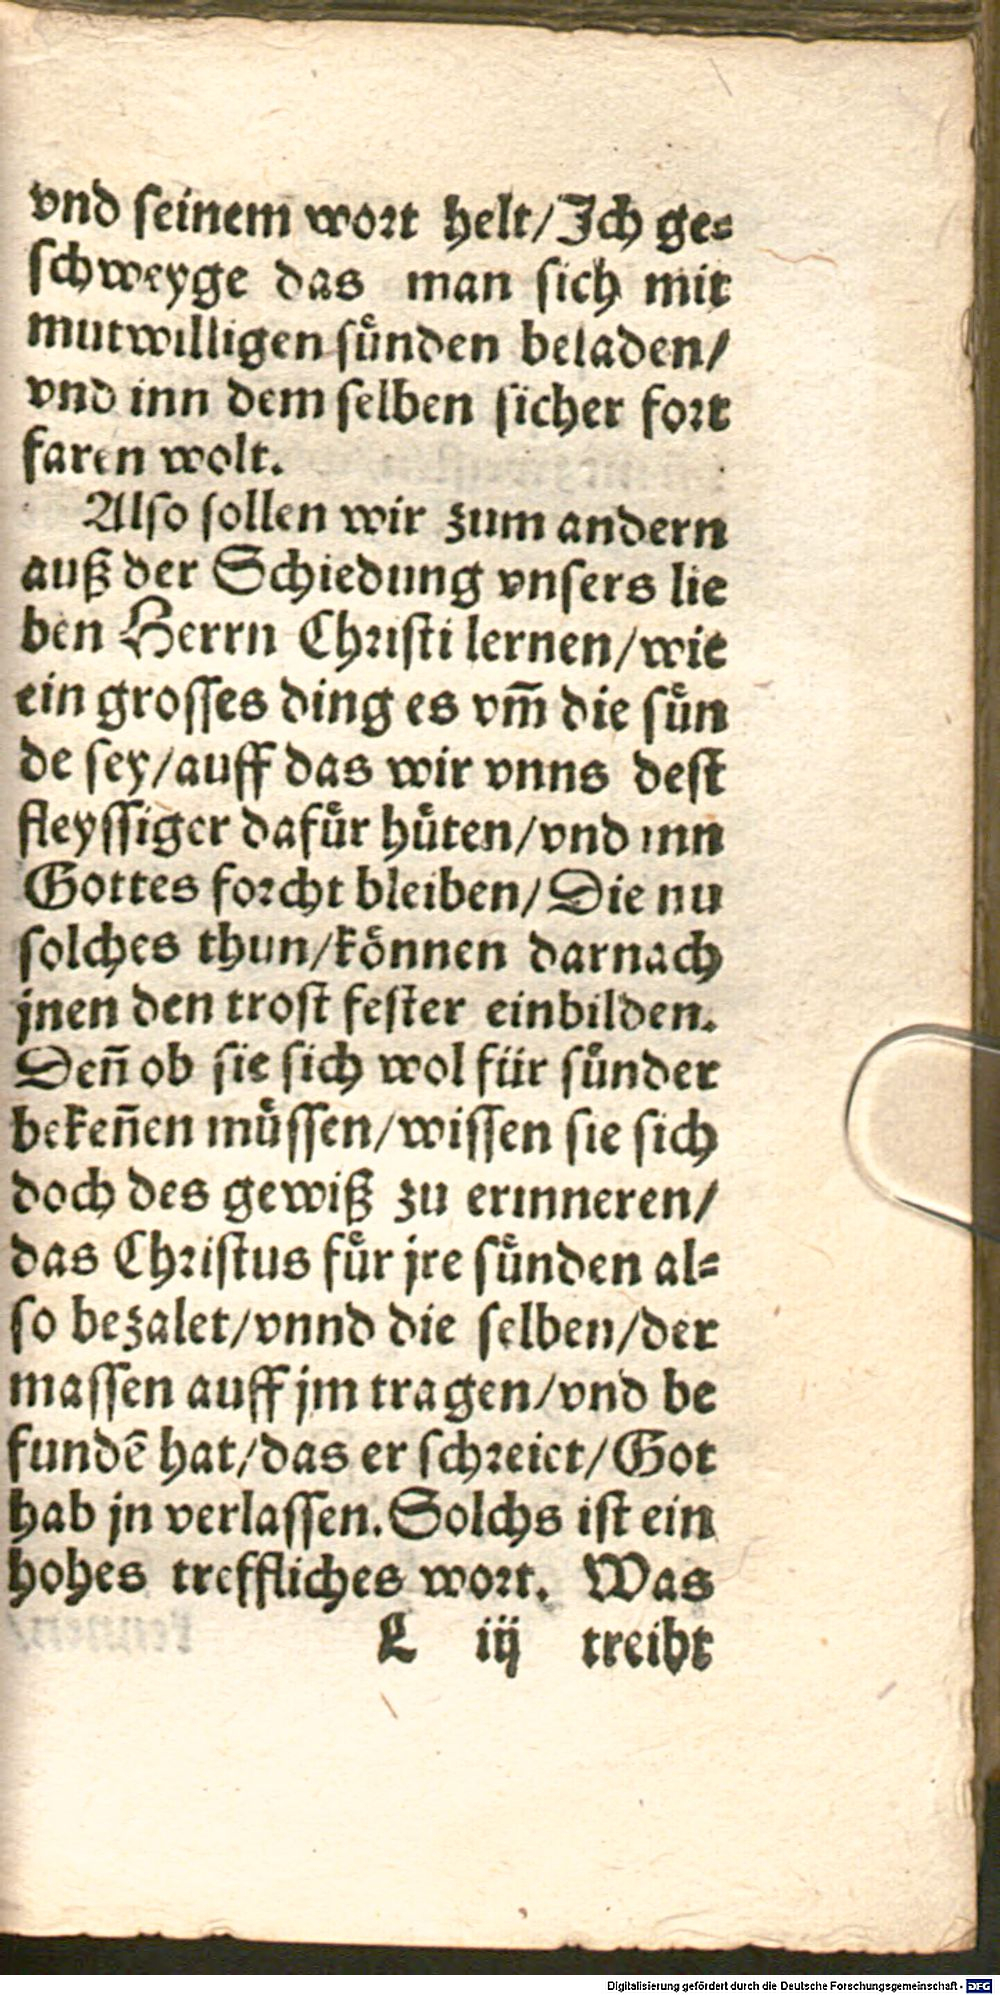 vnd seinem wort helt/Ich ge⸗
schweyge das man sich mit
mutwilligen sůnden beladen/
vnd inn dem selben sicher fort
faren wolt.
Also sollen wir zum andern
auß der Schiedung vnsers lie
ben Herrn Christi lernen/wie
ein grosses ding es vm̃ die sůn
de sey/auff das wir vnns dest
fleyssiger dafůr hůten/vnd inn
Gottes forcht bleiben/Die nu
solches thun/koͤnnen darnach
jnen den trost fester einbilden.
Deñ ob sie sich wol für sůnder
bekeñen můssen/wissen sie sich
doch des gewiß zu erinneren/
das Christus fůr jre sůnden al⸗
so bezalet/vnnd die selben/der
massen auff jm tragen/vnd be
fundẽ hat/das er schreiet/Got
hab jn verlassen. Solchs ist ein
hohes treffliches wort. Was
L iij treibt
Digitalisierung gefördert durch die Deutsche Forschungsgemeinschaft - DFG